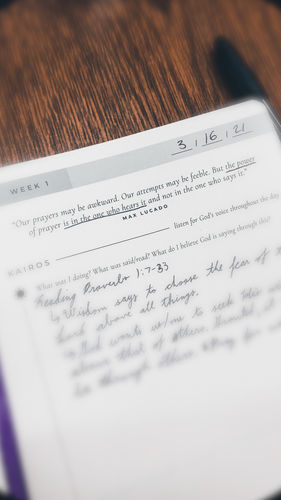 3 / 16 / 21
WEEK 1
"Our prayers may be awkward. Our attempts may be feeble. But the power
of prayer is in the one who hears it and not in the one who says it."
MAX LUCADO
KAIROS listen for God's voice throughout the day
What was I doing? What was said/read? What do I believe God is saying through this?
Reading Proverbs 1:7-33
↳ Wisdom says to choose the fear of
Lord above all things.
wants us/me to seek
above that of others.
through others.